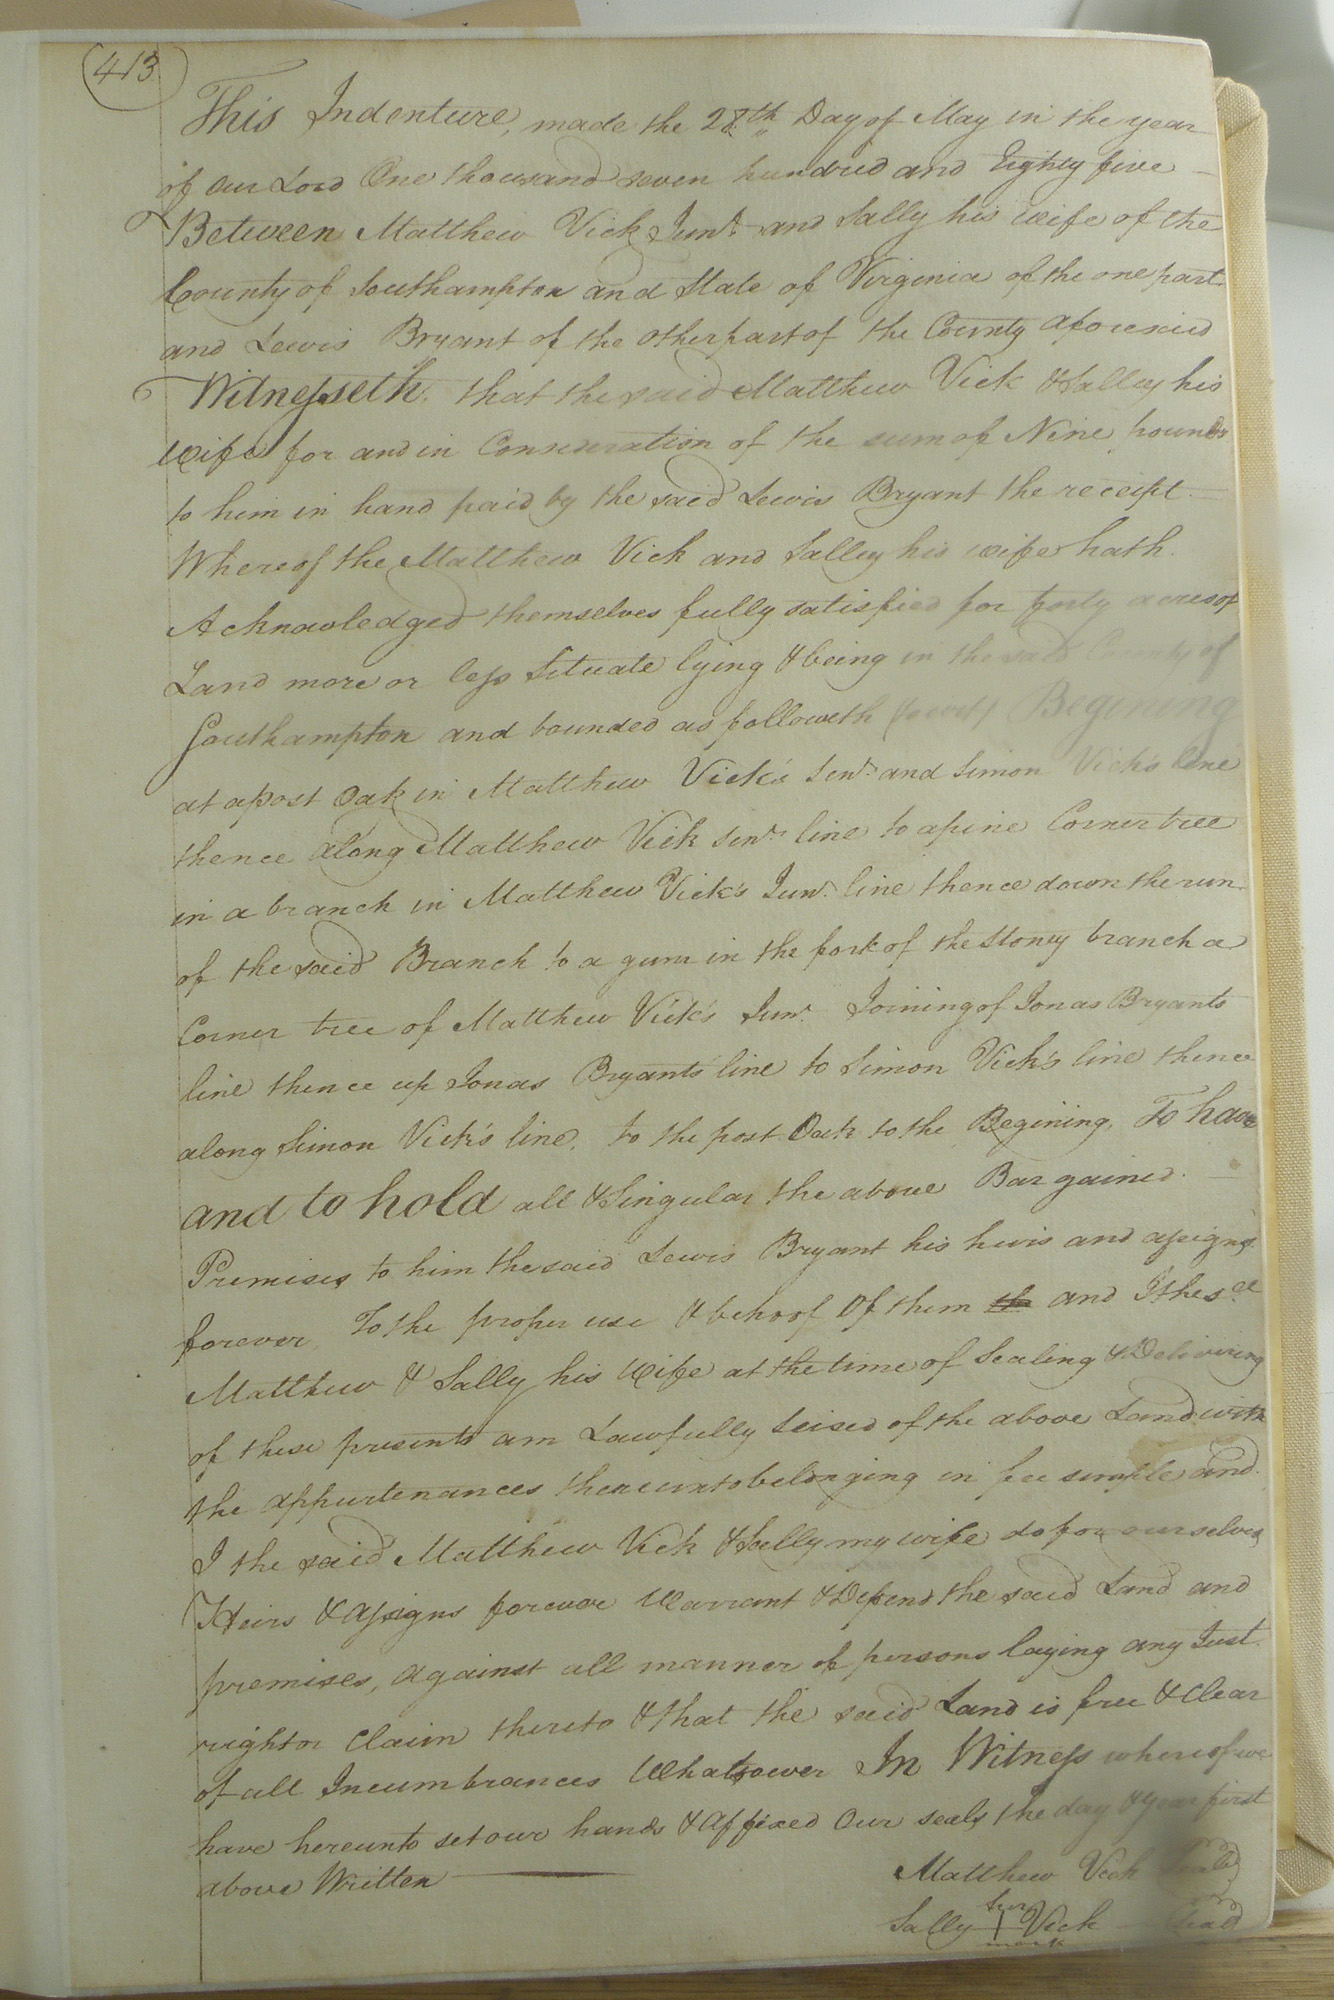 413
This Indenture, made the 28th Day of May in the year
of our Lord One thousand seven hundred and Eighty five
Between Matthew Vick Junr. and Sally his wife of the
County of Southampton and State of Virginia of the one part
and Lewis Bryant of the other part of the County aforesaid
Witnesseth, that the said Matthew Vick & Salley his
wife for and in Consideration of the sum of Nine pounds
to him in hand paid by the said Lewis Bryant the receipt
Whereof the Matthew Vick and Salley his wife hath
Acknowledged themselves fully satisfied for forty acres of
Land more or less Situate lying & being in the said County of
Southampton and bounded as followeth (towit) Begining
at a post Oak in Matthew Vick's Senr. and Simon Vick's line
thence along Matthew Vick Senr. line to a pine Corner tree
in a branch in Matthew Vick's Junr. line thence down the run
of the said Branch to a gum in the fork of the Stoney branch a
Corner tree of Matthew Vick's Junr. Joining of Jonas Bryants
line thence up Jonas Bryants line to Simon Vick's line thence
along Simon Vick's line, to the post Oak to the Begining, To have
and to hold all & Singular the above Bargained
Premises to him the said Lewis Bryant his heirs and assigns
forever, To the proper use & behoof Of them th and I the sd
Matthew & Sally his Wife at the time of Sealing & Delivering
of these presents am Lawfully Seised of the above Land with
the appurtenances thereunto belonging in fee simple and
I the said Matthew Vick & Sally my wife do for ourselves
Heirs & assigns forever Warrant & Defend the said Land and
premises, against all manner of persons laying any Just
right or Claim thereto & that the said Land is free & Clear
of all Incumbrances Whatsoever In Witness whereof we
have hereunto set our hands & affixed Our seals the day & year first
above Written
Matthew Vick Seal
her
Sally + Vick Seal
mark